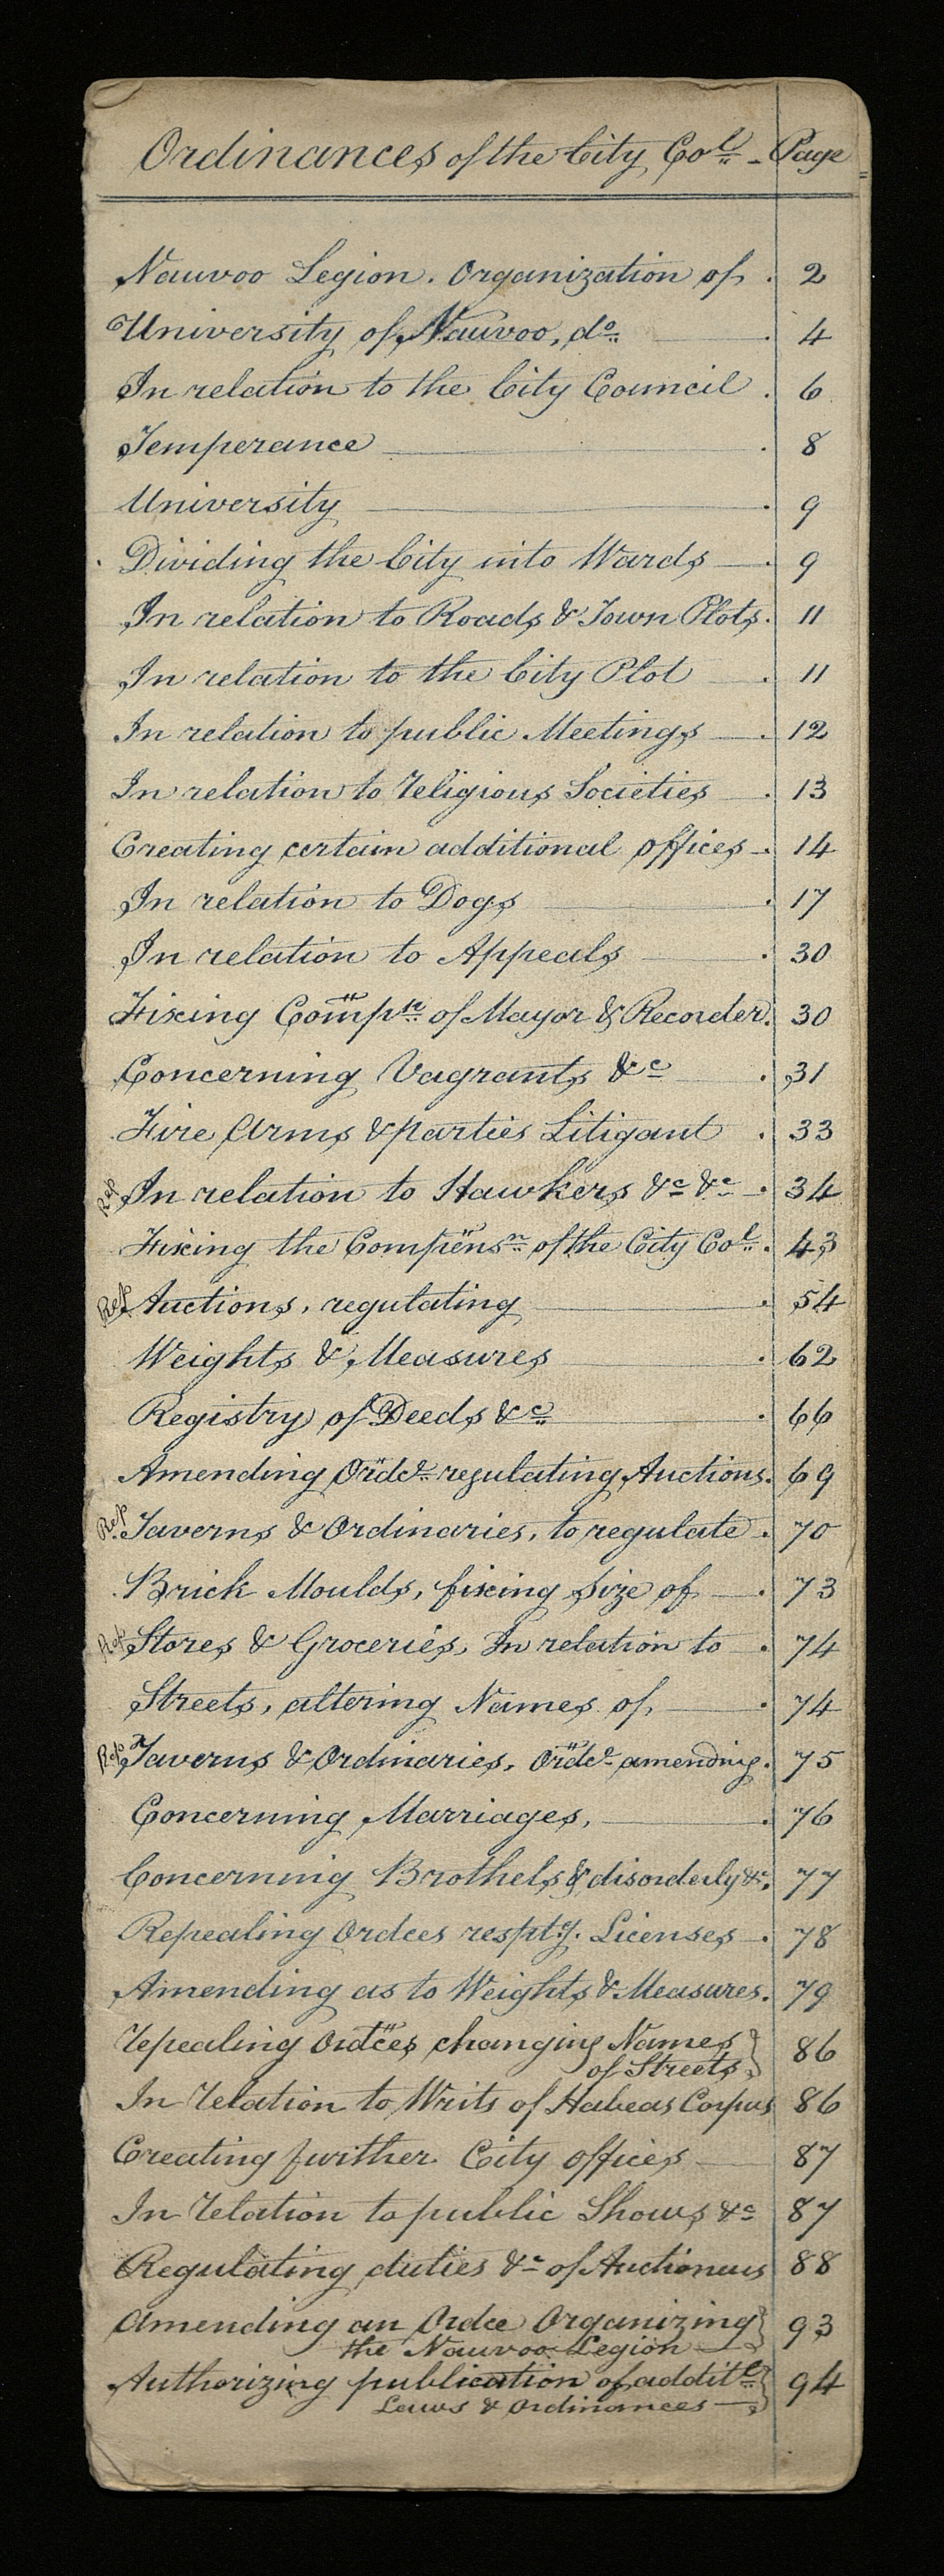 Ordinances of the City Col. - Page
Nauvoo Legion. Organization of . 2
University of Nauvoo, do. . 4
In relation to the City Council . 6
Temperance . 8
University . 9
Dividing the City into Wards . 9
In relation to Roads & Town Plots. 11
In relation to the City Plot . 11
In relation to public Meetings . 12
In relation to religious Societies . 13
Creating certain additional offices . 14
In relation to Dogs . 17
In relation to Appeals . 30
Fixing Compn. of Mayor & Recorder. 30
Concerning Vagrants &c . 31
Fire Arms & parties Litigant . 33
Rep In relation to Hawkers &c &c . 34
Fixing the Compensn. of the City Col. . 43
Rep Auctions, regulating . 54
Weights & Measures . 62
Registry of Deeds &c . 66
Amending Ordce. regulating Auctions. 69
Rep. Taverns & Ordinaries, to regulate . 70
Brick Moulds, fixing size of . 73
Rep Stores & Groceries, In relation to . 74
Streets, altering Names of . 74
Rep Taverns & Ordinaries, Ordce amending . 75
Concerning Marriages, . 76
Concerning Brothels & disorderly &c. 77
Repealing Ordces resptg. Licenses . 78
Amending as to Weights & Measures. 79
repealing Ordces changing Names } 86
of Streets
In relation to Writs of Habeas Corpus 86
Creating further City offices 87
In relation to public Shows &c 87
Regulating duties &c of Auctioneers 88
Amending an Ordce Organizing } 93
the Nauvoo Legion
Authorizing publication of additl. } 94
Laws & Ordinances